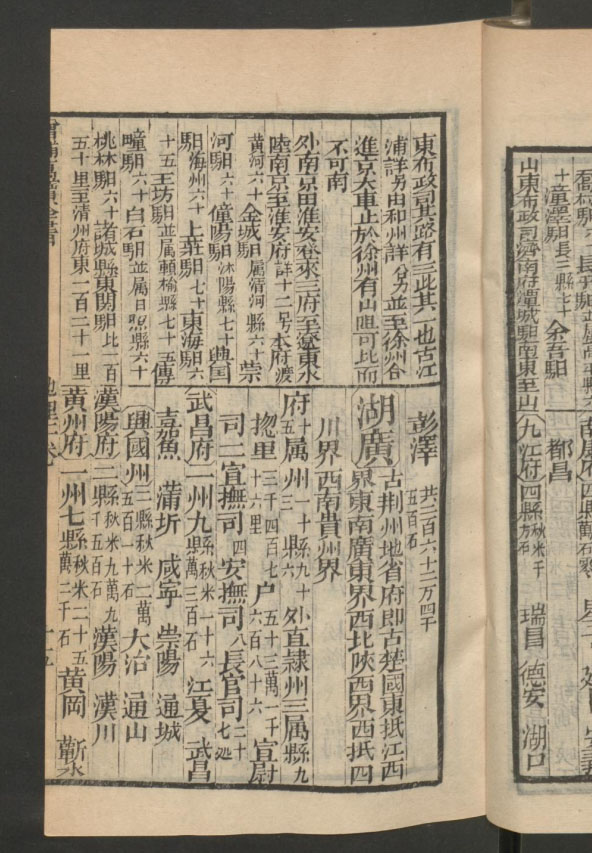 十童澤馹長三縣七十余吾馹
山東布政司濟南府潭城馹南東至山
都昌
九江府四縣秋米千方石 瑞昌 德安 湖口
東布政司其路有三此其一也古江
浦詳另由和州詳公另並至徐州合
進京大車止於徐州有山輿可比而
不可南
外南京由淮安登來三府至遼東水
陸南京至淮安府詳十二另本府渡
黃河六十金城馹屬清河縣六十崇
河馹六十僮陽馹沐陽縣七十興国
馹海州六十上莊馹七十東海馹六
十五王坊馹並属贛榆縣七十五傅
疃馹六十白石馹並属日照縣六十
桃林馹六十諸城縣東関馹比一百
五十里至清州府東一百二十一里
彭澤 共二百六十二万四千五百石
湖廣古荆州地省府即古楚國東抵江西
界東南廣東界西北陜西界西抵四
川界西南貴州界
府十五属州一十三縣九十六外直隷州三属縣九
揔里三千四百七十六里户五十三萬一千六百八十六宣尉
司二宣撫司四安撫司八長官司二十七処
武昌府一州九縣秋米一十六萬三百石江夏 武昌
嘉魚 蒲圻 咸寧 崇陽 通城
興國州三縣秋米二萬五百一十石大冶 通山
漢陽府二縣秋米九萬九千五百石漢陽 漢川
黃州府一州七縣秋米二十五萬二千石黃岡 蘄水